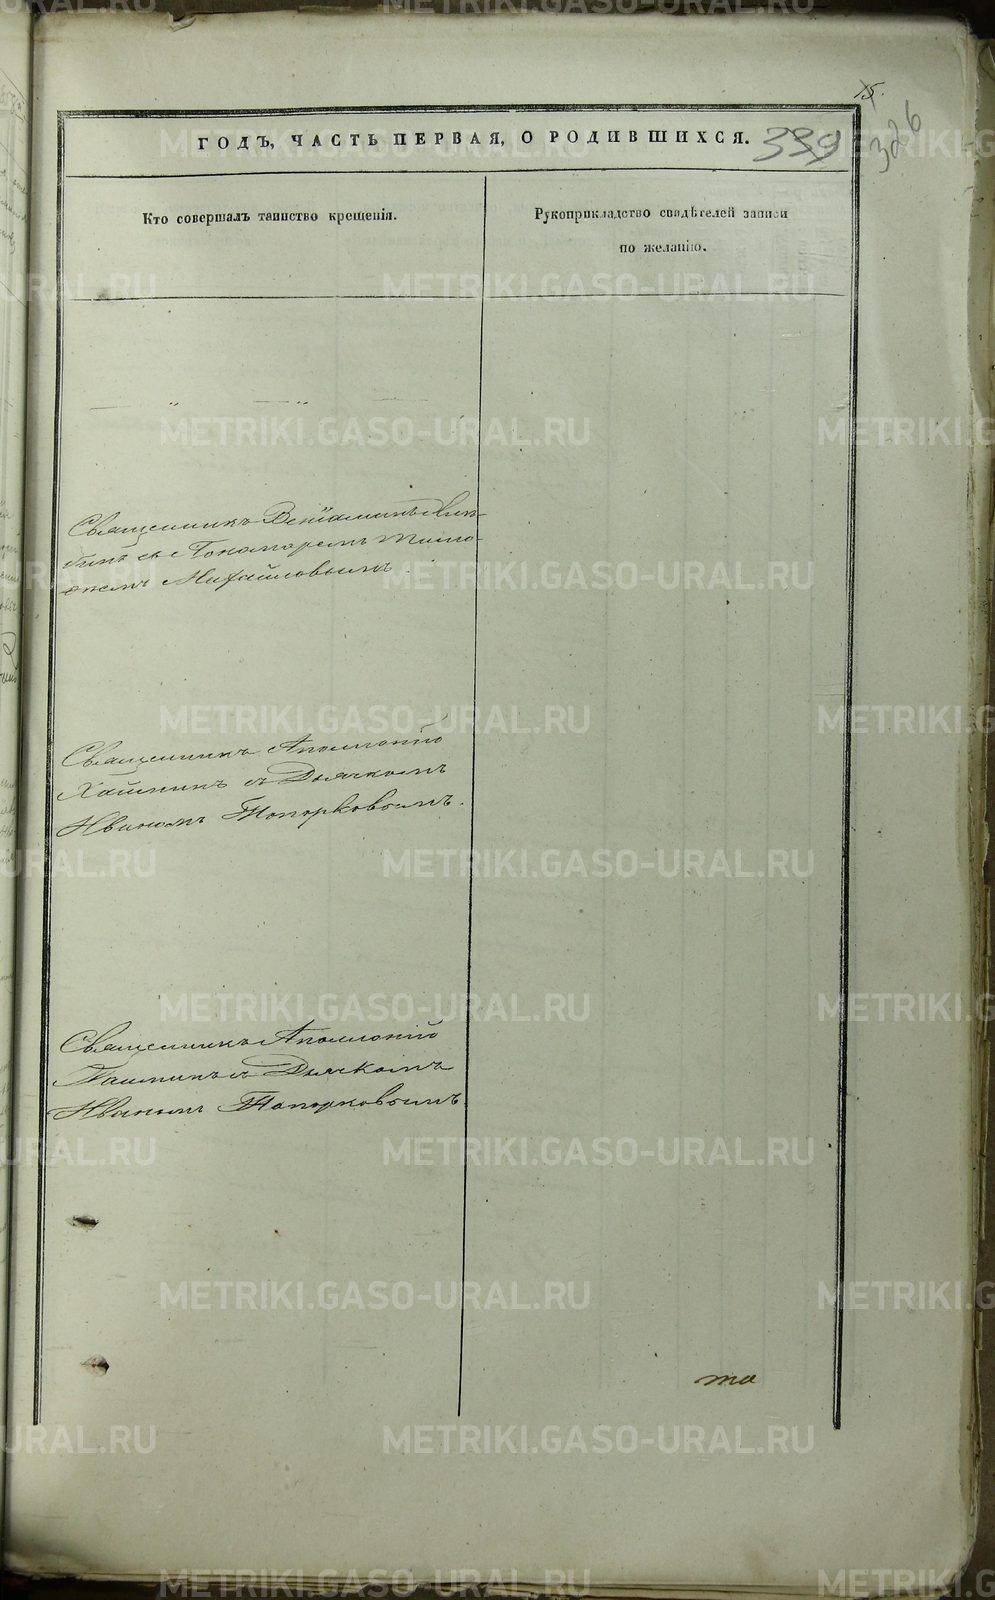 15.
ГОДЪ, ЧАСТЬ ПЕРВАЯ, О РОДИВШИХСЯ.
339
326
Кто совершалъ таинство крещенія.
Рукоприкладство свидѣтелей записи
по желанію.
Священникъ Веніаминъ
съ Пономаремъ Тимо-
ѳеемъ Михайловымъ.
Священникъ Аполлоній
съ Дьячкомъ
Иваномъ Топорковымъ.
Священникъ Аполлоній
съ Дьячкомъ
Иваномъ Топорковымъ.
та
METRIKI.GASO-URAL.RU